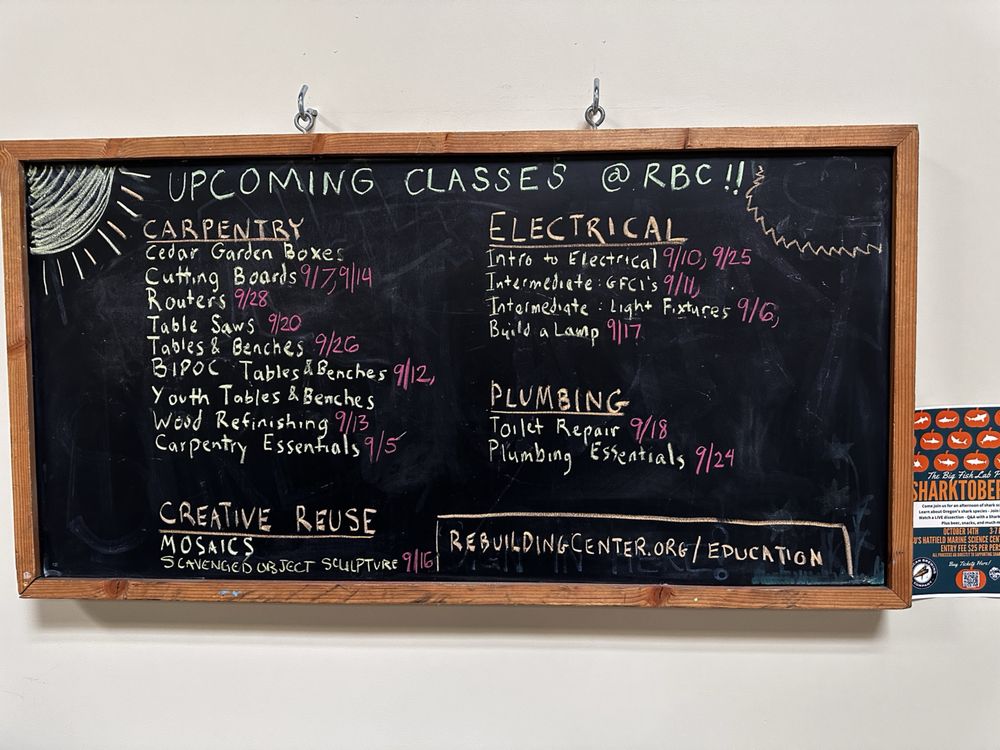 UPCOMING CLASSES @ RBC !!
CARPENTRY
Cedar Garden Boxes
Cutting Boards 9/7, 9/14
Routers 9/28
Table Saws 9/20
Tables & Benches 9/26
BIPOC Tables & Benches 9/12,
Youth Tables & Benches
Wood Refinishing 9/13
Carpentry Essentials 9/5
CREATIVE REUSE
MOSAICS
SCAVENGED OBJECT SCULPTURE 9/16
ELECTRICAL
Intro to Electrical 9/10, 9/25
Intermediate: GFCI's 9/11,
Intormediate: Light Fixtures 9/6,
Build a Lamp 9/17
PLUMBING
Toilet Repair 9/18
Plumbing Essentials 9/24
REBUILDINGCENTER.ORG/EDUCATION
The Big Fish Lab
SHARKTOBE
Come join us for an afternoon of shark
Learn about Oregon's shark species
Watch a LIVE dissection - Q&A with a
Plus beer, snacks, and much
OCTOBER 14TH
HATFIELD MARINE SCIENCE
ENTRY FEE $25 PER
Buy Tickets Here!